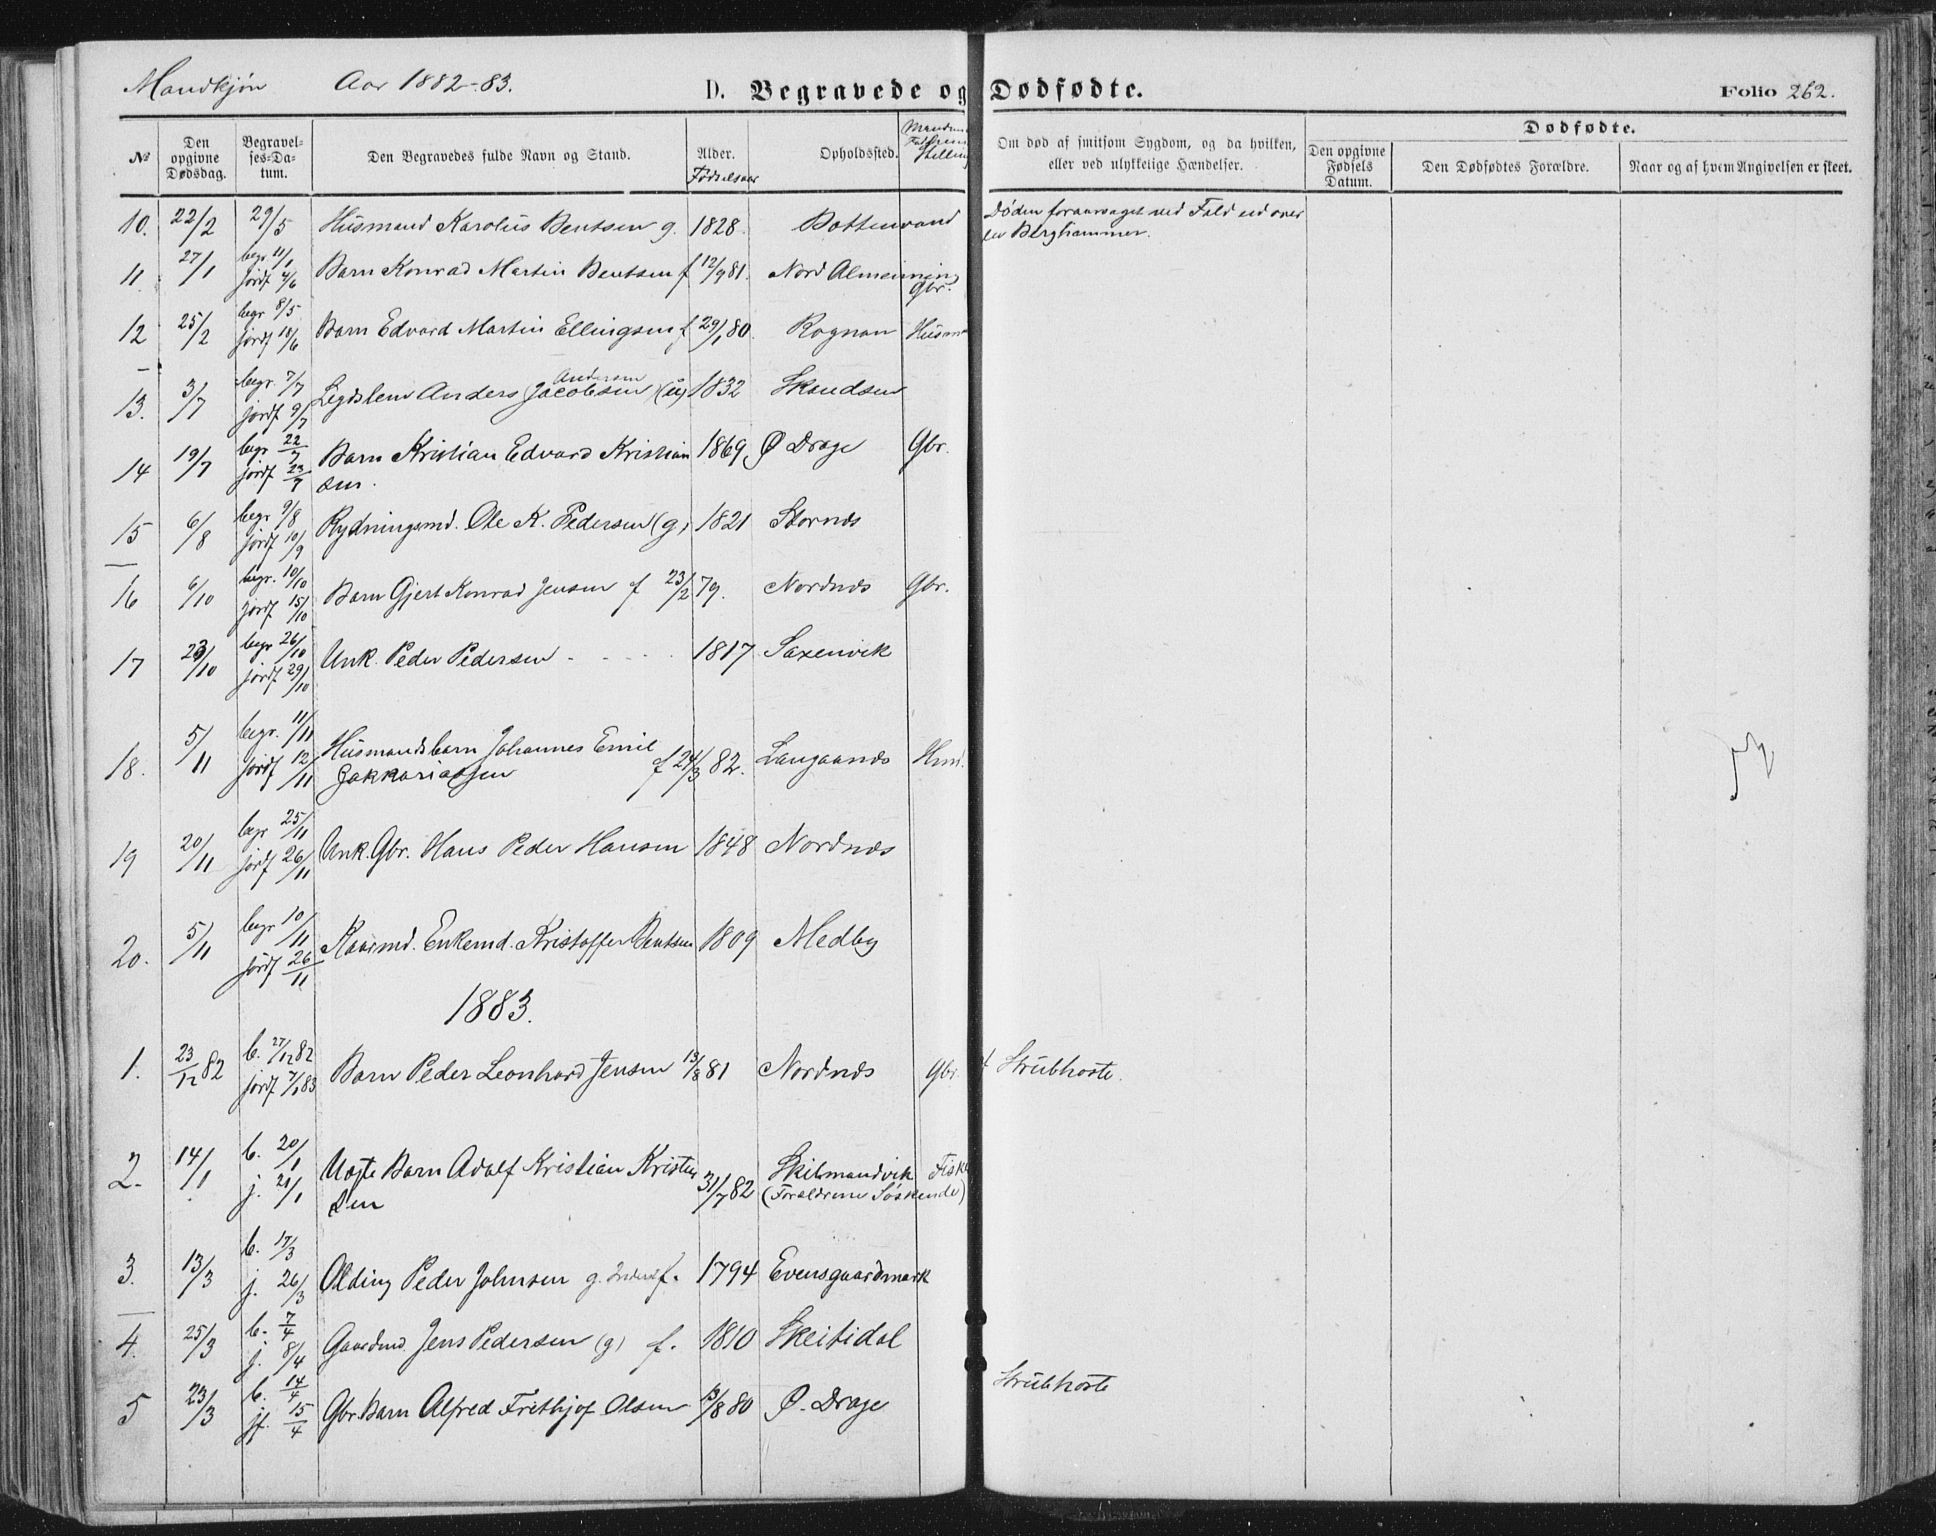 Mandkjøn Aar 1882-83. D. Begravede og Dødfødte. Folio 262.
№ Den opgivne Dødsdag. Begravelses-Datum. Den Begravedes fulde Navn og Stand. Alder. Fødselsaar Opholdssted. Om død af smitsom Sygdom, og da hvilken, eller ved ulykkelige Hændelser. Dødfødte. Den opgivne Fødsels Datum. Den Dødfødtes Forældre. Naar og af hvem Angivelsen er skeet.
10. 22/2 29/5 Husmand Karolus Bentsen g. 1828. Bottenvand Døden foraarsaget ved Fald ud over
en Berghammer.
11. 27/1 begr. 11/1 jordf 4/6 Barn Konrad Martin Bentsen f 12/9 81. Nord Almenning Gbr.
12 25/2 begr 8/5 jordf 18/6 Barn Edvard Martin Ellingsen f 29/1 80. Rognan Husm
13. 3/7 begr. 7/7 jordf 9/7 Legdslem Anders Jacobsen Andersen (u) 1832 Skandsen
14 19/7 begr 22/7 jordf 23/7 Barn Kristian Edvard Kristian
sen. 1869 Ø Drage Gbr.
15 6/8 begr 9/8 jordf 10/9 Rydningsmd. Ole K. Pedersen (g) 1821 Stornæs
16 6/10 begr. 10/10 jordf 15/10 Barn Gjert Konrad Jensen f 23/2 79. Nordnæs Gbr.
17 23/10 begr 26/10 jordf 29/10 Unk. Peder Pedersen - - - - 1817 Saxenvik
18. 5/11 begr. 11/11 jordf 12/11 Husmandsbarn Johannes Emil
Zakkariassen f 24/3 82. Langaanæs Hmd.
19 20/11 begr 25/11 jordf 26/11 Unk. Gbr. Hans Peder Hansen 1848 Nordnæs
20. 5/11 begr 10/11 jordf 26/11 Kaarmd. Enkemd. Kristoffer Bentsen 1809 Medby
1883.
1. 23/12 82 b. 27/12 82 jordf 7/1 83 Barn Peder Leonhard Jensen 13/8 81 Nordnæs Gbr Strubhoste.
2. 14/1 b. 20/1 j. 21/1 Uægte Barn Adolf Kristian Kristen
sen 31/7 82 Skilmandvik Fisk
(Forældrene Søskende)
3. 13/3 b. 17/3 j. 26/3 Olding Peder Johnsen g. f. 1794 Evensgaardmark
4. 25/3 b. 7/4 j. 8/4 Gaardmd Jens Pedersen (g) f. 1810 Skeitidal
5 23/3 b. 14/4 jf. 15/4 Gbr. Barn Alfred Frithjof Olsen /8 80 Ø. Drage Strubhoste